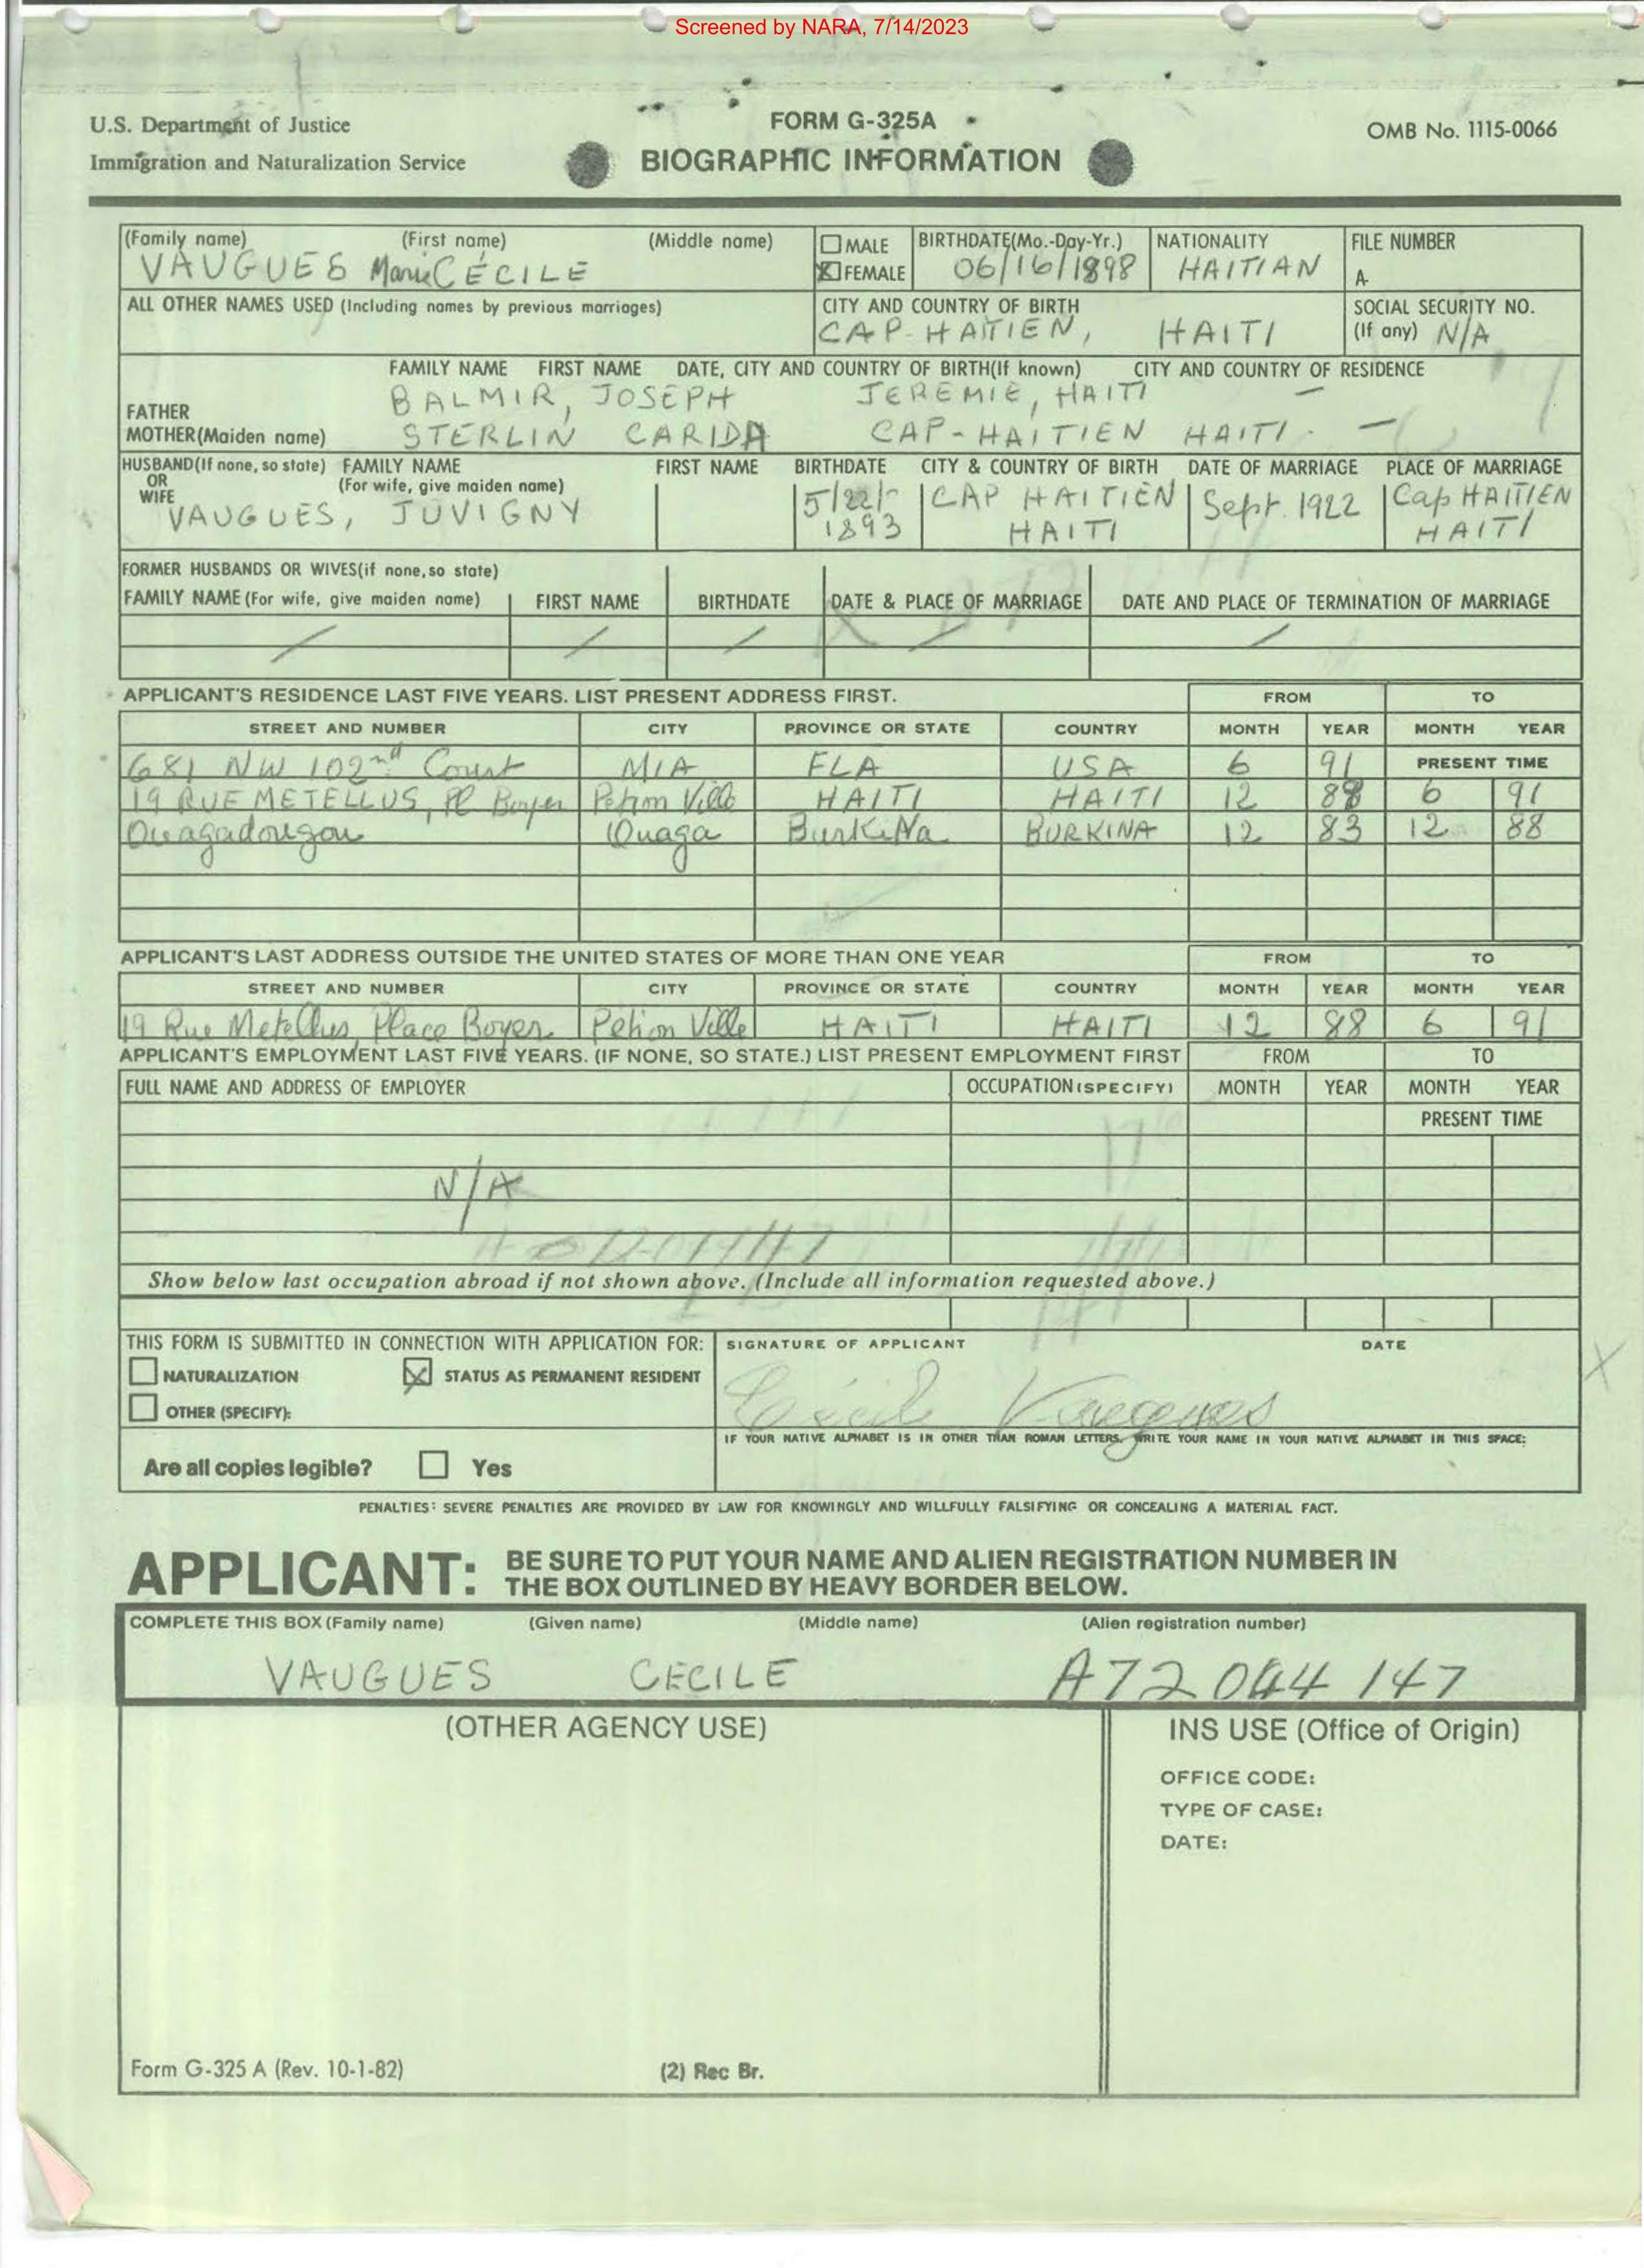 Screened by NARA, 7/14/2023
U.S. Department of Justice
Immigration and Naturalization Service
FORM G-325A
BIOGRAPHIC INFORMATION
OMB No. 1115-0066
(Family name) (First name) (Middle name) MALE BIRTHDATE(Mo.-Day-Yr.) NATIONALITY FILE NUMBER
VAUGUES Marie CÉCILE FEMALE 06/16/1898 HAITIAN A-
ALL OTHER NAMES USED (Including names by previous marriages) CITY AND COUNTRY OF BIRTH SOCIAL SECURITY NO.
CAP-HAITIEN, HAITI (If any) N/A
FAMILY NAME FIRST NAME DATE, CITY AND COUNTRY OF BIRTH(If known) CITY AND COUNTRY OF RESIDENCE
FATHER BALMIR, JOSEPH JEREMIE, HAITI —
MOTHER(Maiden name) STERLIN CARIDA CAP-HAITIEN HAITI. —
HUSBAND(If none, so state) FAMILY NAME FIRST NAME BIRTHDATE CITY & COUNTRY OF BIRTH DATE OF MARRIAGE PLACE OF MARRIAGE
OR (For wife, give maiden name)
WIFE
VAUGUES, JUVIGNY 5/22/- CAP HAITIEN Sept. 1922 Cap HAITIEN
1893 HAITI HAITI
FORMER HUSBANDS OR WIVES(if none,so state)
FAMILY NAME (For wife, give maiden name) FIRST NAME BIRTHDATE DATE & PLACE OF MARRIAGE DATE AND PLACE OF TERMINATION OF MARRIAGE
/ / / / /
APPLICANT'S RESIDENCE LAST FIVE YEARS. LIST PRESENT ADDRESS FIRST. FROM TO
STREET AND NUMBER CITY PROVINCE OR STATE COUNTRY MONTH YEAR MONTH YEAR
681 NW 102nd Court MIA FLA USA 6 91 PRESENT TIME
19 RUE METELLUS, Pl Boyer Petion Ville HAITI HAITI 12 88 6 91
Ouagadougou Ouaga BurkiNa BURKINA 12 83 12 88
APPLICANT'S LAST ADDRESS OUTSIDE THE UNITED STATES OF MORE THAN ONE YEAR FROM TO
STREET AND NUMBER CITY PROVINCE OR STATE COUNTRY MONTH YEAR MONTH YEAR
19 Rue Metellus, Place Boyer Petion Ville HAITI HAITI 12 88 6 91
APPLICANT'S EMPLOYMENT LAST FIVE YEARS. (IF NONE, SO STATE.) LIST PRESENT EMPLOYMENT FIRST FROM TO
FULL NAME AND ADDRESS OF EMPLOYER OCCUPATION (SPECIFY) MONTH YEAR MONTH YEAR
PRESENT TIME
N/A
Show below last occupation abroad if not shown above. (Include all information requested above.)
THIS FORM IS SUBMITTED IN CONNECTION WITH APPLICATION FOR: SIGNATURE OF APPLICANT DATE
NATURALIZATION STATUS AS PERMANENT RESIDENT
OTHER (SPECIFY): Cécil Vaugues
IF YOUR NATIVE ALPHABET IS IN OTHER THAN ROMAN LETTERS, WRITE YOUR NAME IN YOUR NATIVE ALPHABET IN THIS SPACE:
Are all copies legible? Yes
PENALTIES: SEVERE PENALTIES ARE PROVIDED BY LAW FOR KNOWINGLY AND WILLFULLY FALSIFYING OR CONCEALING A MATERIAL FACT.
APPLICANT: BE SURE TO PUT YOUR NAME AND ALIEN REGISTRATION NUMBER IN
THE BOX OUTLINED BY HEAVY BORDER BELOW.
COMPLETE THIS BOX (Family name) (Given name) (Middle name) (Alien registration number)
VAUGUES CECILE A72 044 147
(OTHER AGENCY USE) INS USE (Office of Origin)
OFFICE CODE:
TYPE OF CASE:
DATE:
Form G-325 A (Rev. 10-1-82) (2) Rec Br.